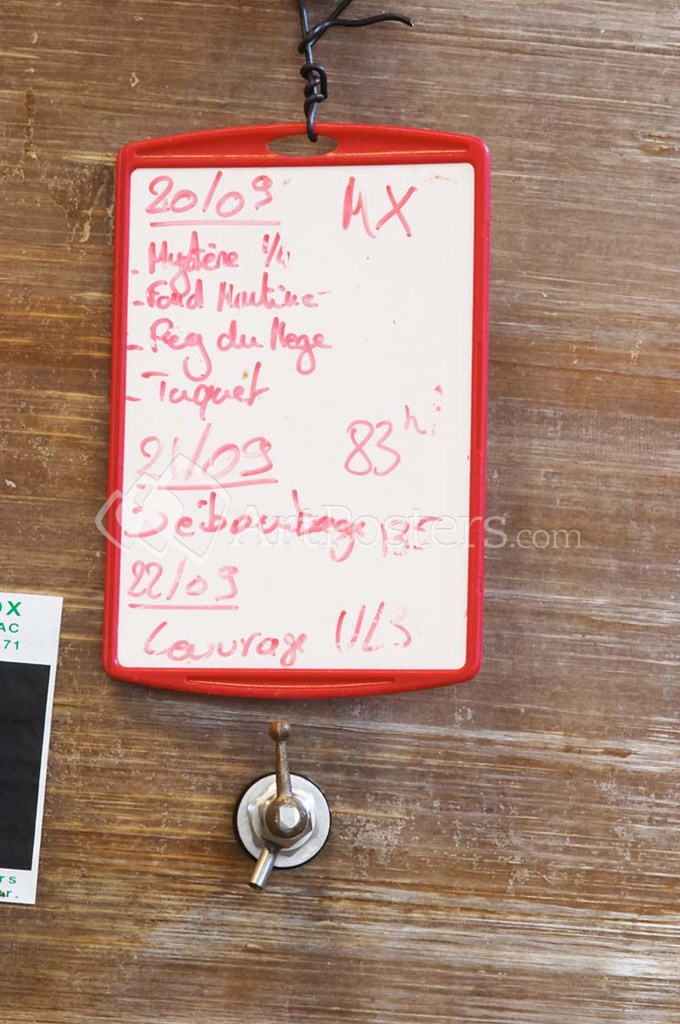 20/09 MX
- Mystère 1/4
- Fond Martine
- Peg du Mege
- Tuquet
21/09 83 h
Débourbage
22/09
Levurage VL3
ArtPosters.com
OX
AC
71
rs
r.